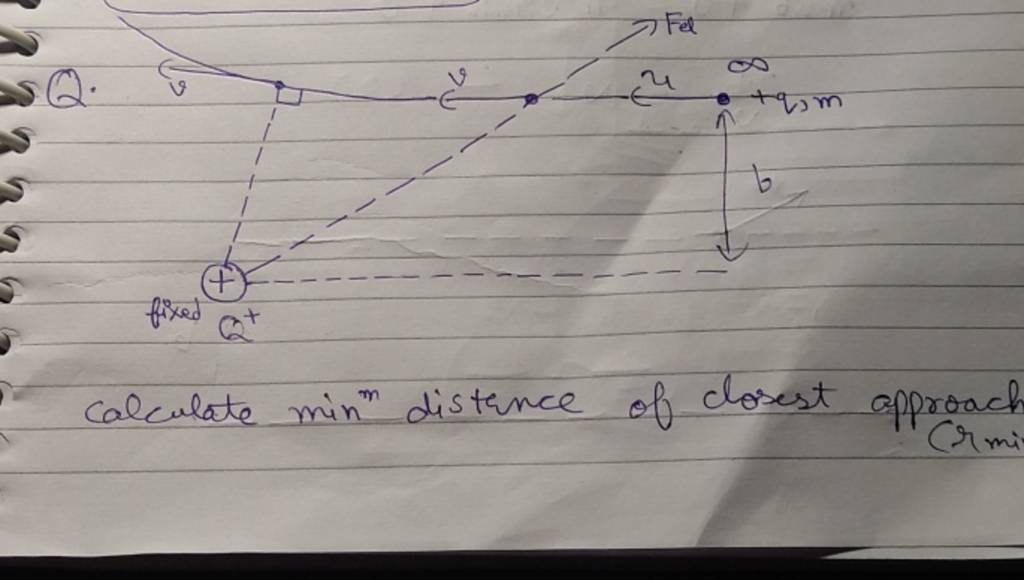 Fel
Q.
v
v
u
∞
+q, m
b
+
fixed
Q+
calculate minᵐ distance of closest approach
(rmi